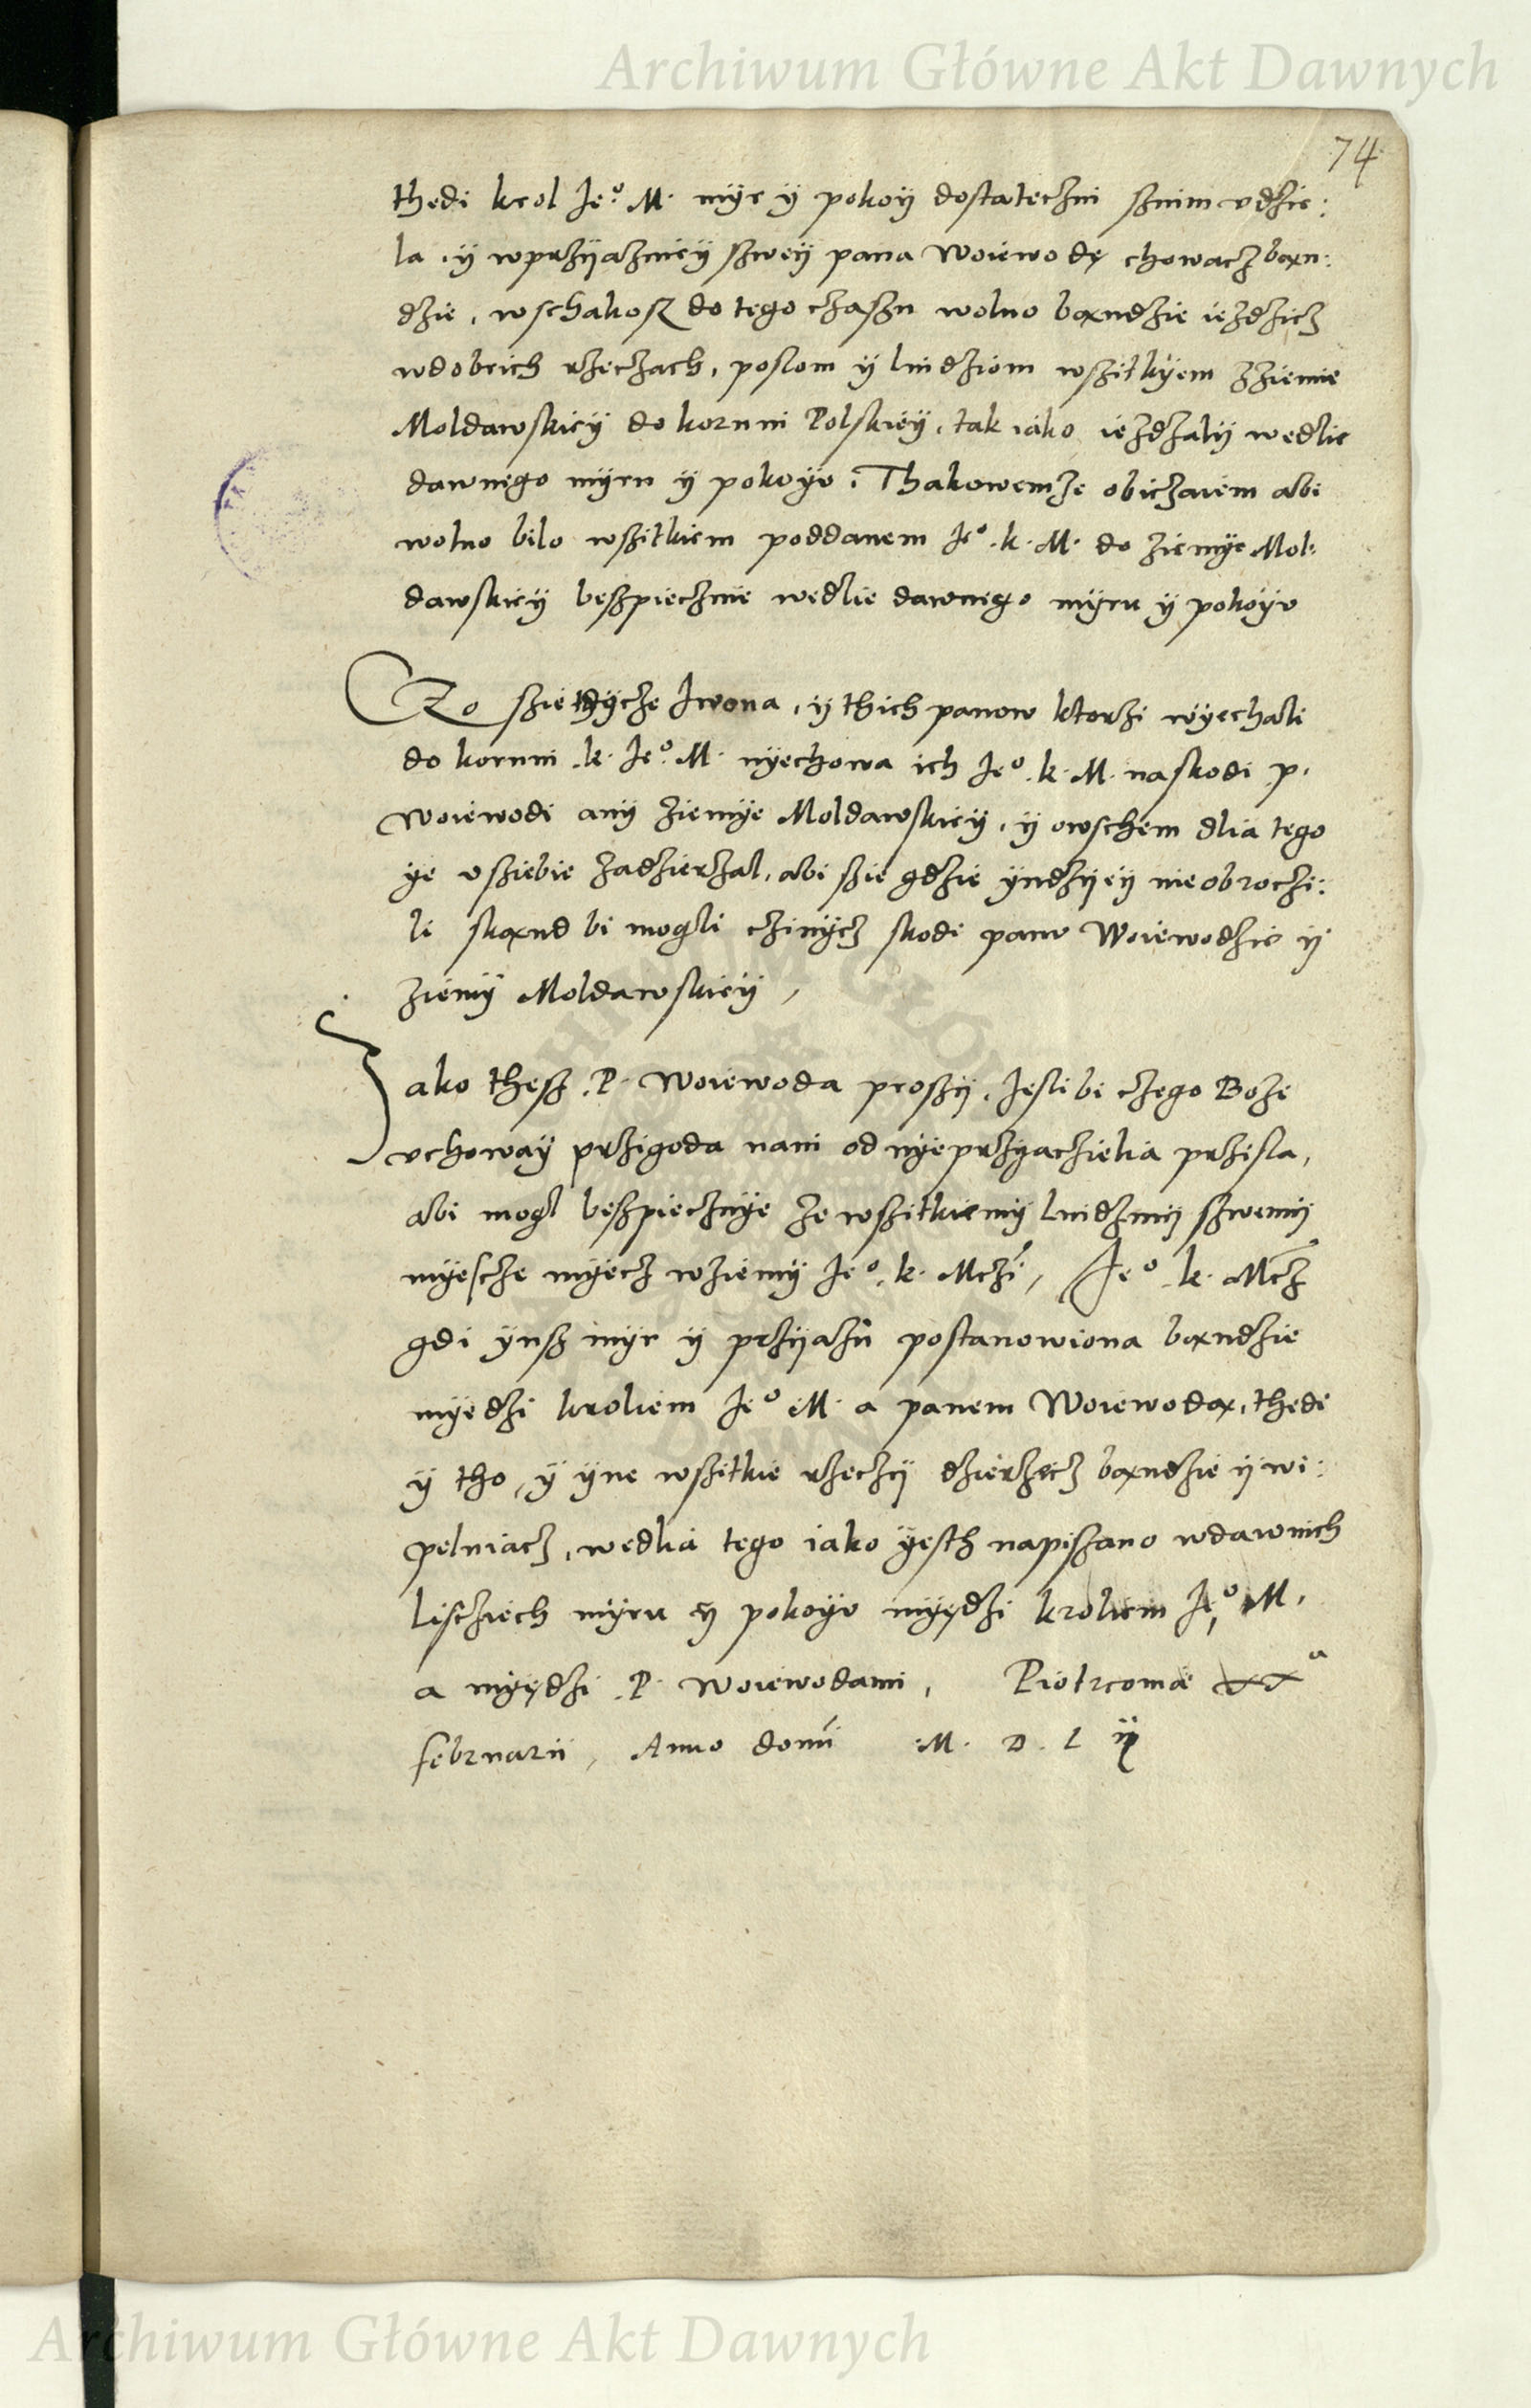 Archiwum Główne Akt Dawnych
74
thedi krol Je⁰ M. myr ÿ pokoÿ dostateczni sznim vdzie:
la, ÿ wprzÿaznieÿ szweÿ pana Woiewodę chowacz baxn:
dzie, wschakosz do tego czaszu wolno baxndzie iezdzicz
wdobrich rzeczach, poslom ÿ luidziom wszitkÿem zziemie
Moldawskieÿ do korunÿ Polskieÿ, tak iako iezdzalÿ wedlie
dawnego mÿru ÿ pokoÿv. Thakowemze obiczaiem abi
wolno bilo wszitkiem poddanem Je⁰ k. M. do ziemÿe Mol:
dawskieÿ beszpiecznie wedlie dawnego mÿru ÿ pokoÿv
Czo szie thÿcze Iwona, ÿ thich panow ktorzi wÿechali
do korunÿ k. Je⁰ M. nÿechowa ich Je⁰ k. M. naskodi p.
Woiewodi anÿ ziemÿe Moldawskieÿ, ÿ owschem dlia tego
ÿe vsziebie zadzierzal, abi szie gdzie ÿndzÿeÿ nieobroczi:
li skaxnd bi mogli czinÿcz skodi panv Woiewodzie ÿ
ziemÿ Moldawskieÿ,
Jako thesz P. Woiewoda proszÿ, Jeslibi czego Boze
vchowaÿ przigoda nani od nÿeprzÿaczielia przisla,
abi mogl beszpiecznÿe ze wszitkiemÿ luidzmÿ szwemÿ
mÿescze mÿecz wziemÿ Je⁰ k. Mczi, Je⁰ k. Mcz
gdi ÿusz mÿr ÿ przÿazn postanowiona baxndzie
mÿedzi kroliem Je⁰ M. a panem Woiewodax, thedi
ÿ tho, ÿ ÿne wszitkie rzeczÿ dzierzecz baxndzie ÿ wi:
pelniacz, wedlia tego iako ÿesth napiszano wdawnich
liscziech mÿru ÿ pokoÿv mÿędzi kroliem Je⁰ M.
a mÿędzi P. Woiewodami, Piotrcomae xxᵃ
februarii, Anno domi M. D. L ÿ
Archiwum Główne Akt Dawnych